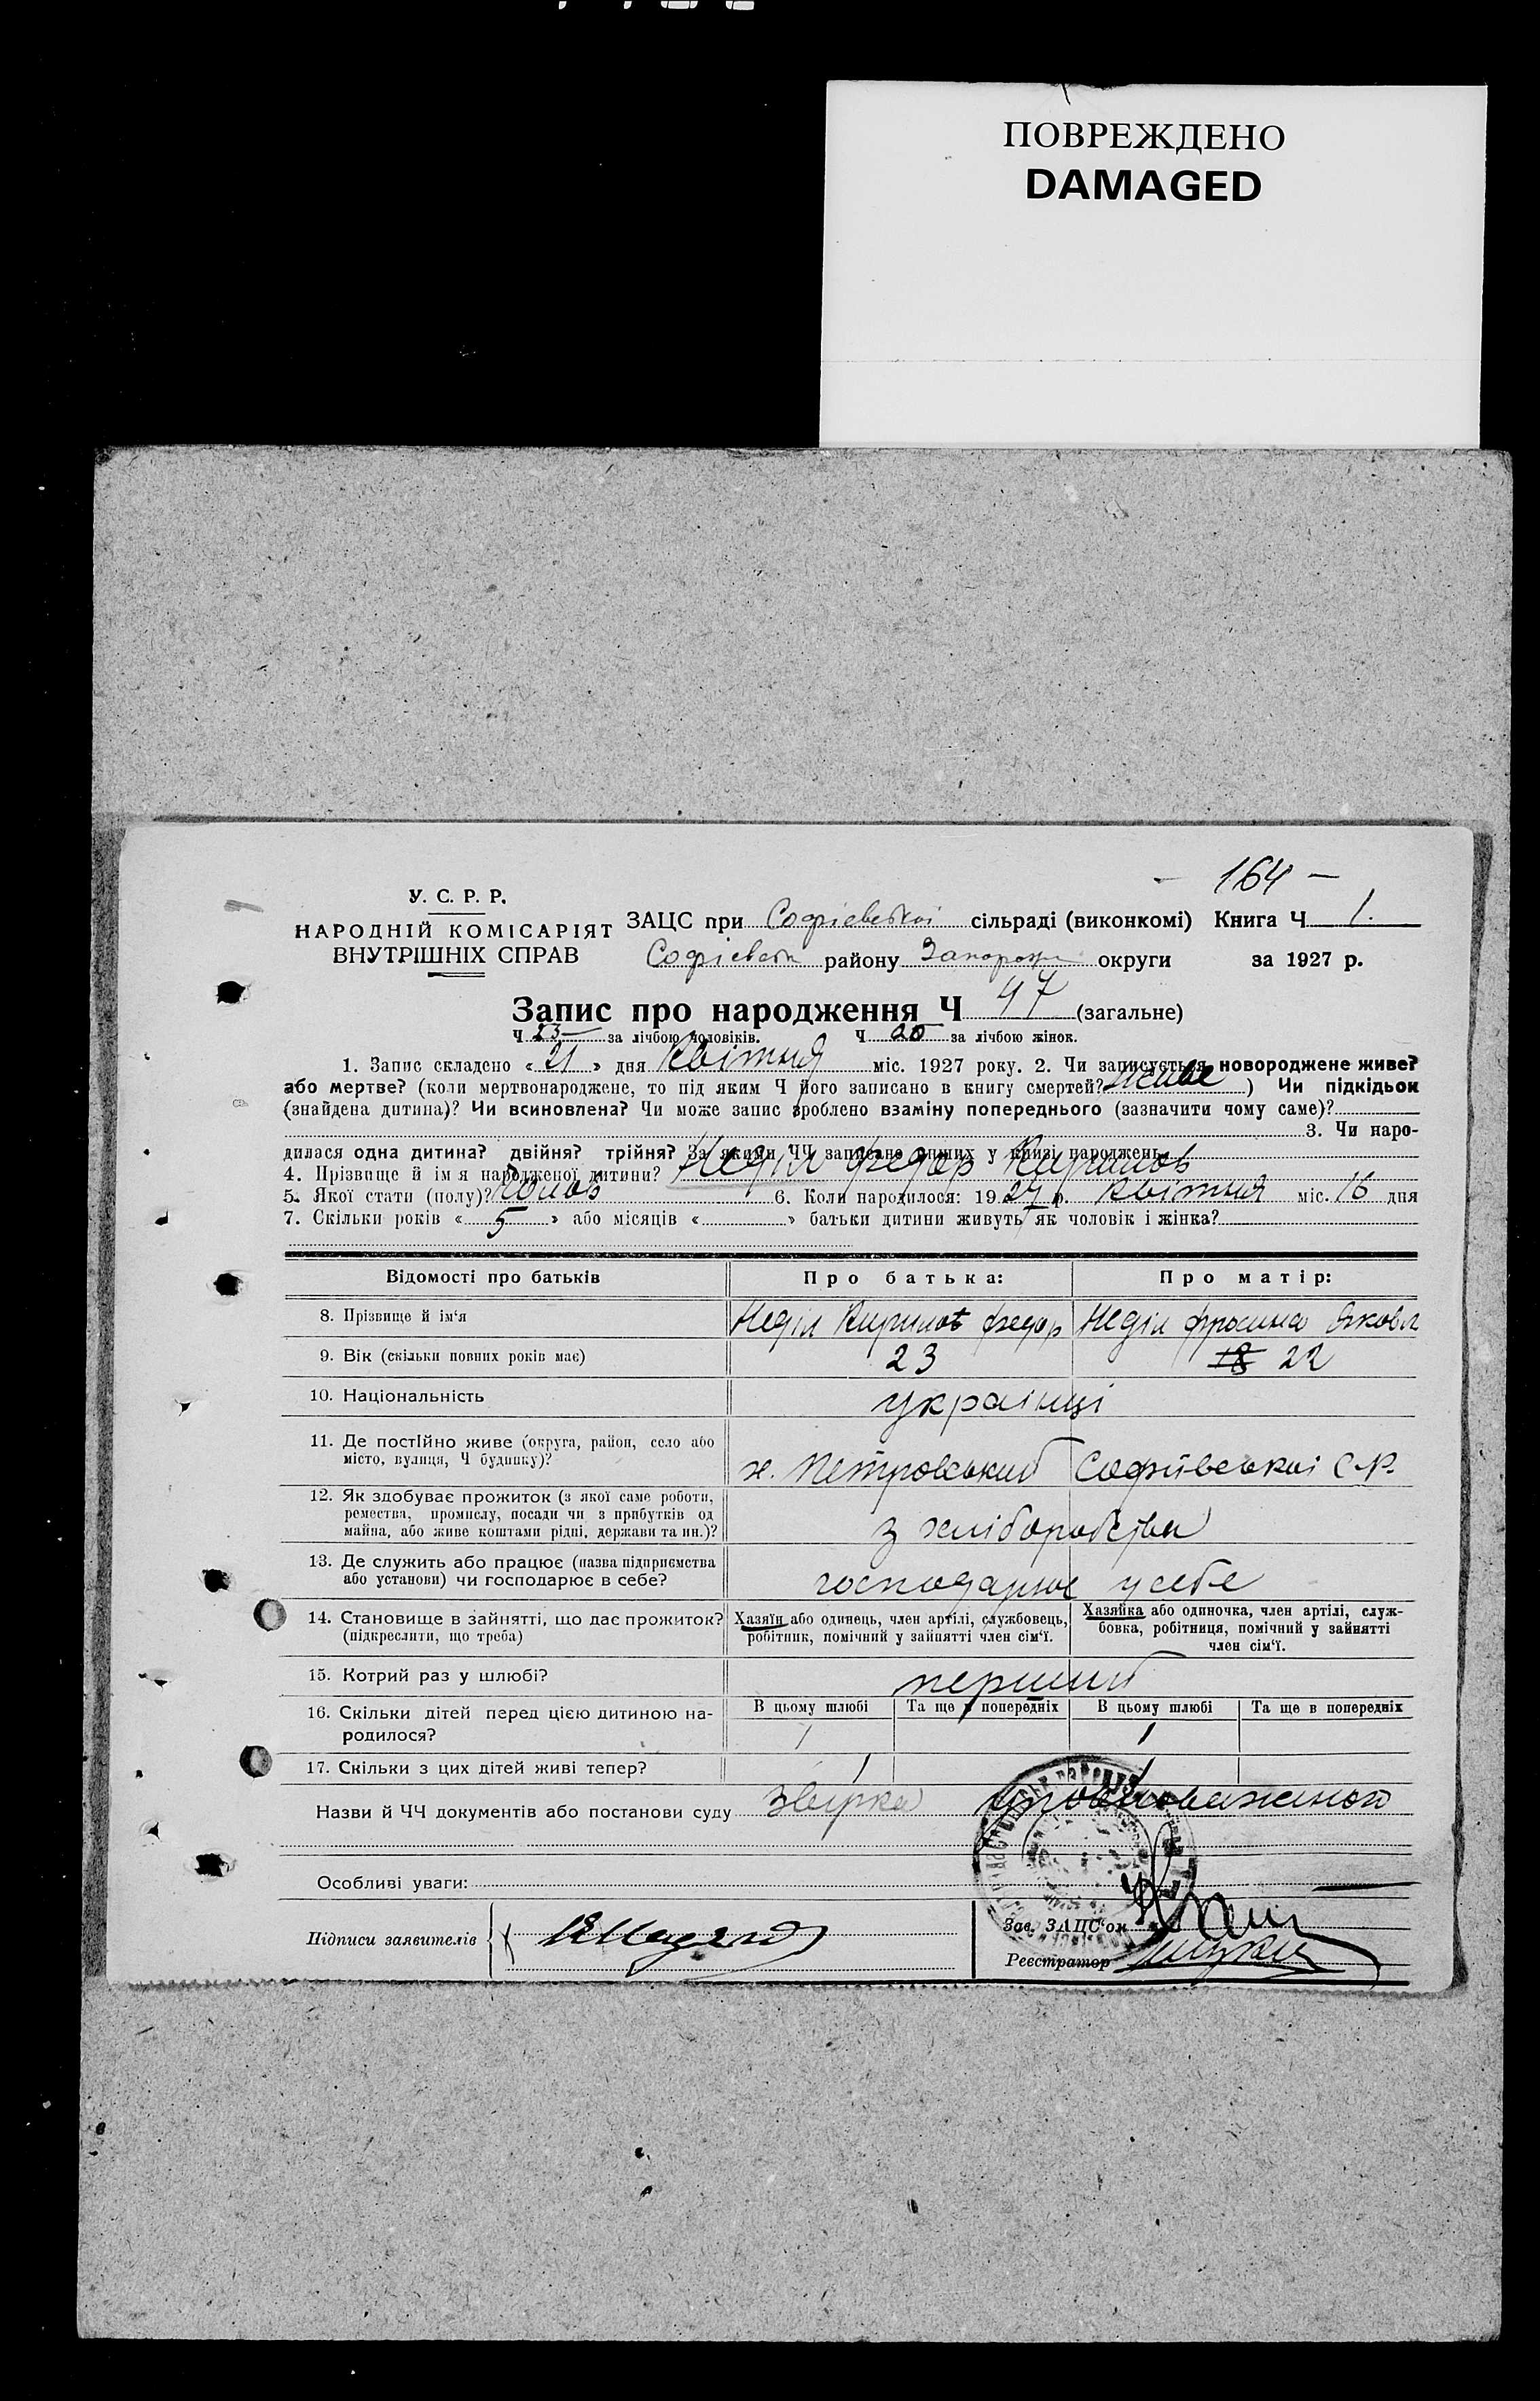 ПОВРЕЖДЕНО
DAMAGED
164 —
У. С. Р. Р.
НАРОДНІЙ КОМІСАРІЯТ
ВНУТРІШНІХ СПРАВ
ЗАЦС при Софіевської сільраді (виконкомі) Книга Ч 1.
Софієвськ району Запорож округи за 1927 р.
Запис про народження Ч 47 (загальне)
Ч 23 за лічбою чоловіків. Ч за лічбою жінок.
1. Запис складено « 21 » дня Квітня міс. 1927 року. 2. Чи записується новороджене живе?
або мертве? (коли мертвонароджене, то під яким Ч його записано в книгу смертей? живе ) Чи підкідьок
(знайдена дитина)? Чи всиновлена? Чи може запис зроблено взаміну попереднього (зазначити чому саме)?
3. Чи наро-
дилася одна дитина? двійня? трійня? За якими ЧЧ записано инших у книзі народжень
4. Прізвище й ім я народженої дитини? Неділ федор Кирилов
5. Якої стати (полу)? 6. Коли народилося: 19 27 р. квітня міс. 16 дня
7. Скільки років « 5 » або місяців « » батьки дитини живуть як чоловік і жінка?
Відомості про батьків Про батька: Про матір:
8. Прізвище й ім‘я Неділ Кирило федор Неділ фросина Яковл
9. Вік (скільки повних років має) 23 18 22
10. Національність українці
11. Де постійно живе (округа, район, село або
місто, вулиця, Ч будинку)? х. Петровський Софіївської С.Р.
12. Як здобуває прожиток (з якої саме роботи,
ремества, промислу, посади чи з прибутків од
майна, або живе коштами рідні, держави та ин.)? з хліборобства
13. Де служить або працює (назва підприємства
або установи) чи господарює в себе? господарює у себе
14. Становище в зайнятті, що дає прожиток?
(підкреслити, що треба)
Хазяїн або одинець, член артілі, службовець,
робітник, помічний у зайнятті член сім‘ї.
Хазяйка або одиночка, член артілі, служ-
бовка, робітниця, помічний у зайнятті
член сім‘ї.
15. Котрий раз у шлюбі? перший
16. Скільки дітей перед цією дитиною на-
родилося?
В цьому шлюбі Та ще в попередніх В цьому шлюбі Та ще в попередніх
1 1
17. Скільки з цих дітей живі тепер? 1 1
Назви й ЧЧ документів або постанови суду
Особливі уваги:
Підписи заявителів
Зав. ЗАЦС‘ом
Реєстратор